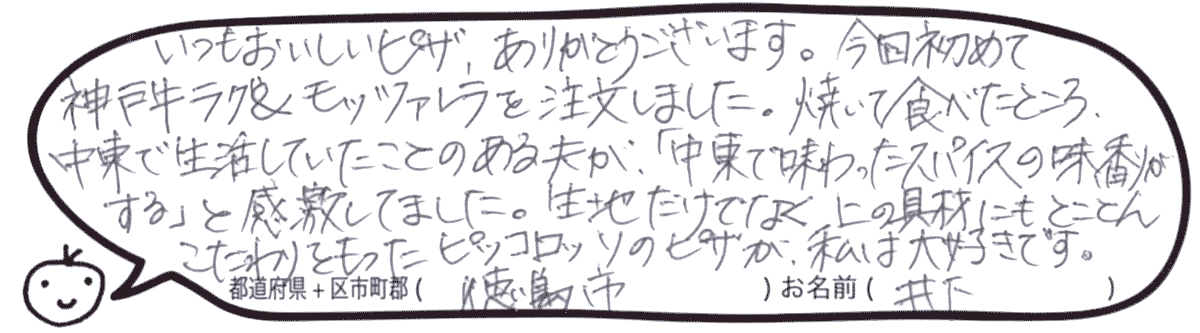 いつもおいしいピザ、ありがとうございます。今回初めて
神戸牛ラグ&モッツァレラを注文しました。焼いて食べたところ、
中東で生活していたことのある夫が、「中東で味わったスパイスの味香りが
する」と感激してました。生地だけでなく上の具材にもとことん
こだわりをもったピッコロッソのピザが、私は大好きです。
都道府県+区市町郡( 徳島市 ) お名前( 井下 )